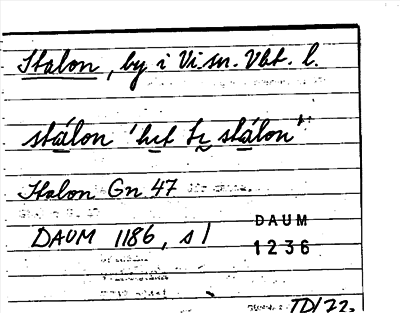 Stalon, by i Vi.sn. Vbt. l.
stálon 'het te stálon'
Stalon Gn 47
DAUM 1186, s 1
DAUM
1236
TD/72.